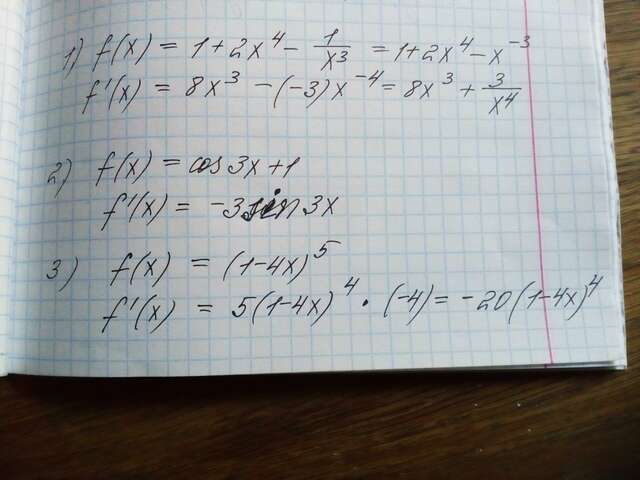 1) f(x) = 1 + 2x⁴ - 1/x³ = 1 + 2x⁴ - x⁻³
f'(x) = 8x³ - (-3)x⁻⁴ = 8x³ + 3/x⁴
2) f(x) = cos 3x + 1
f'(x) = -3 sin 3x
3) f(x) = (1-4x)⁵
f'(x) = 5(1-4x)⁴ · (-4) = -20(1-4x)⁴